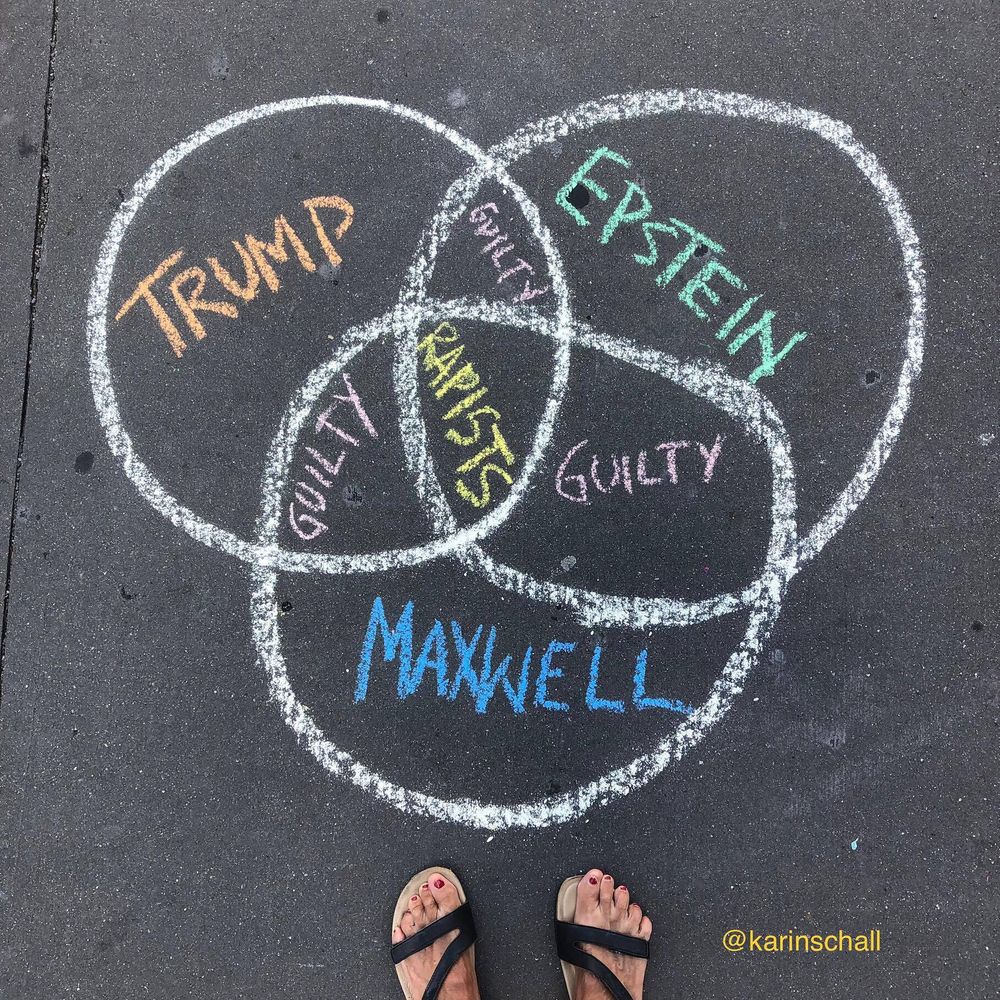 TRUMP
EPSTEIN
GUILTY
RAPISTS
GUILTY
GUILTY
MAXWELL
@karinschall